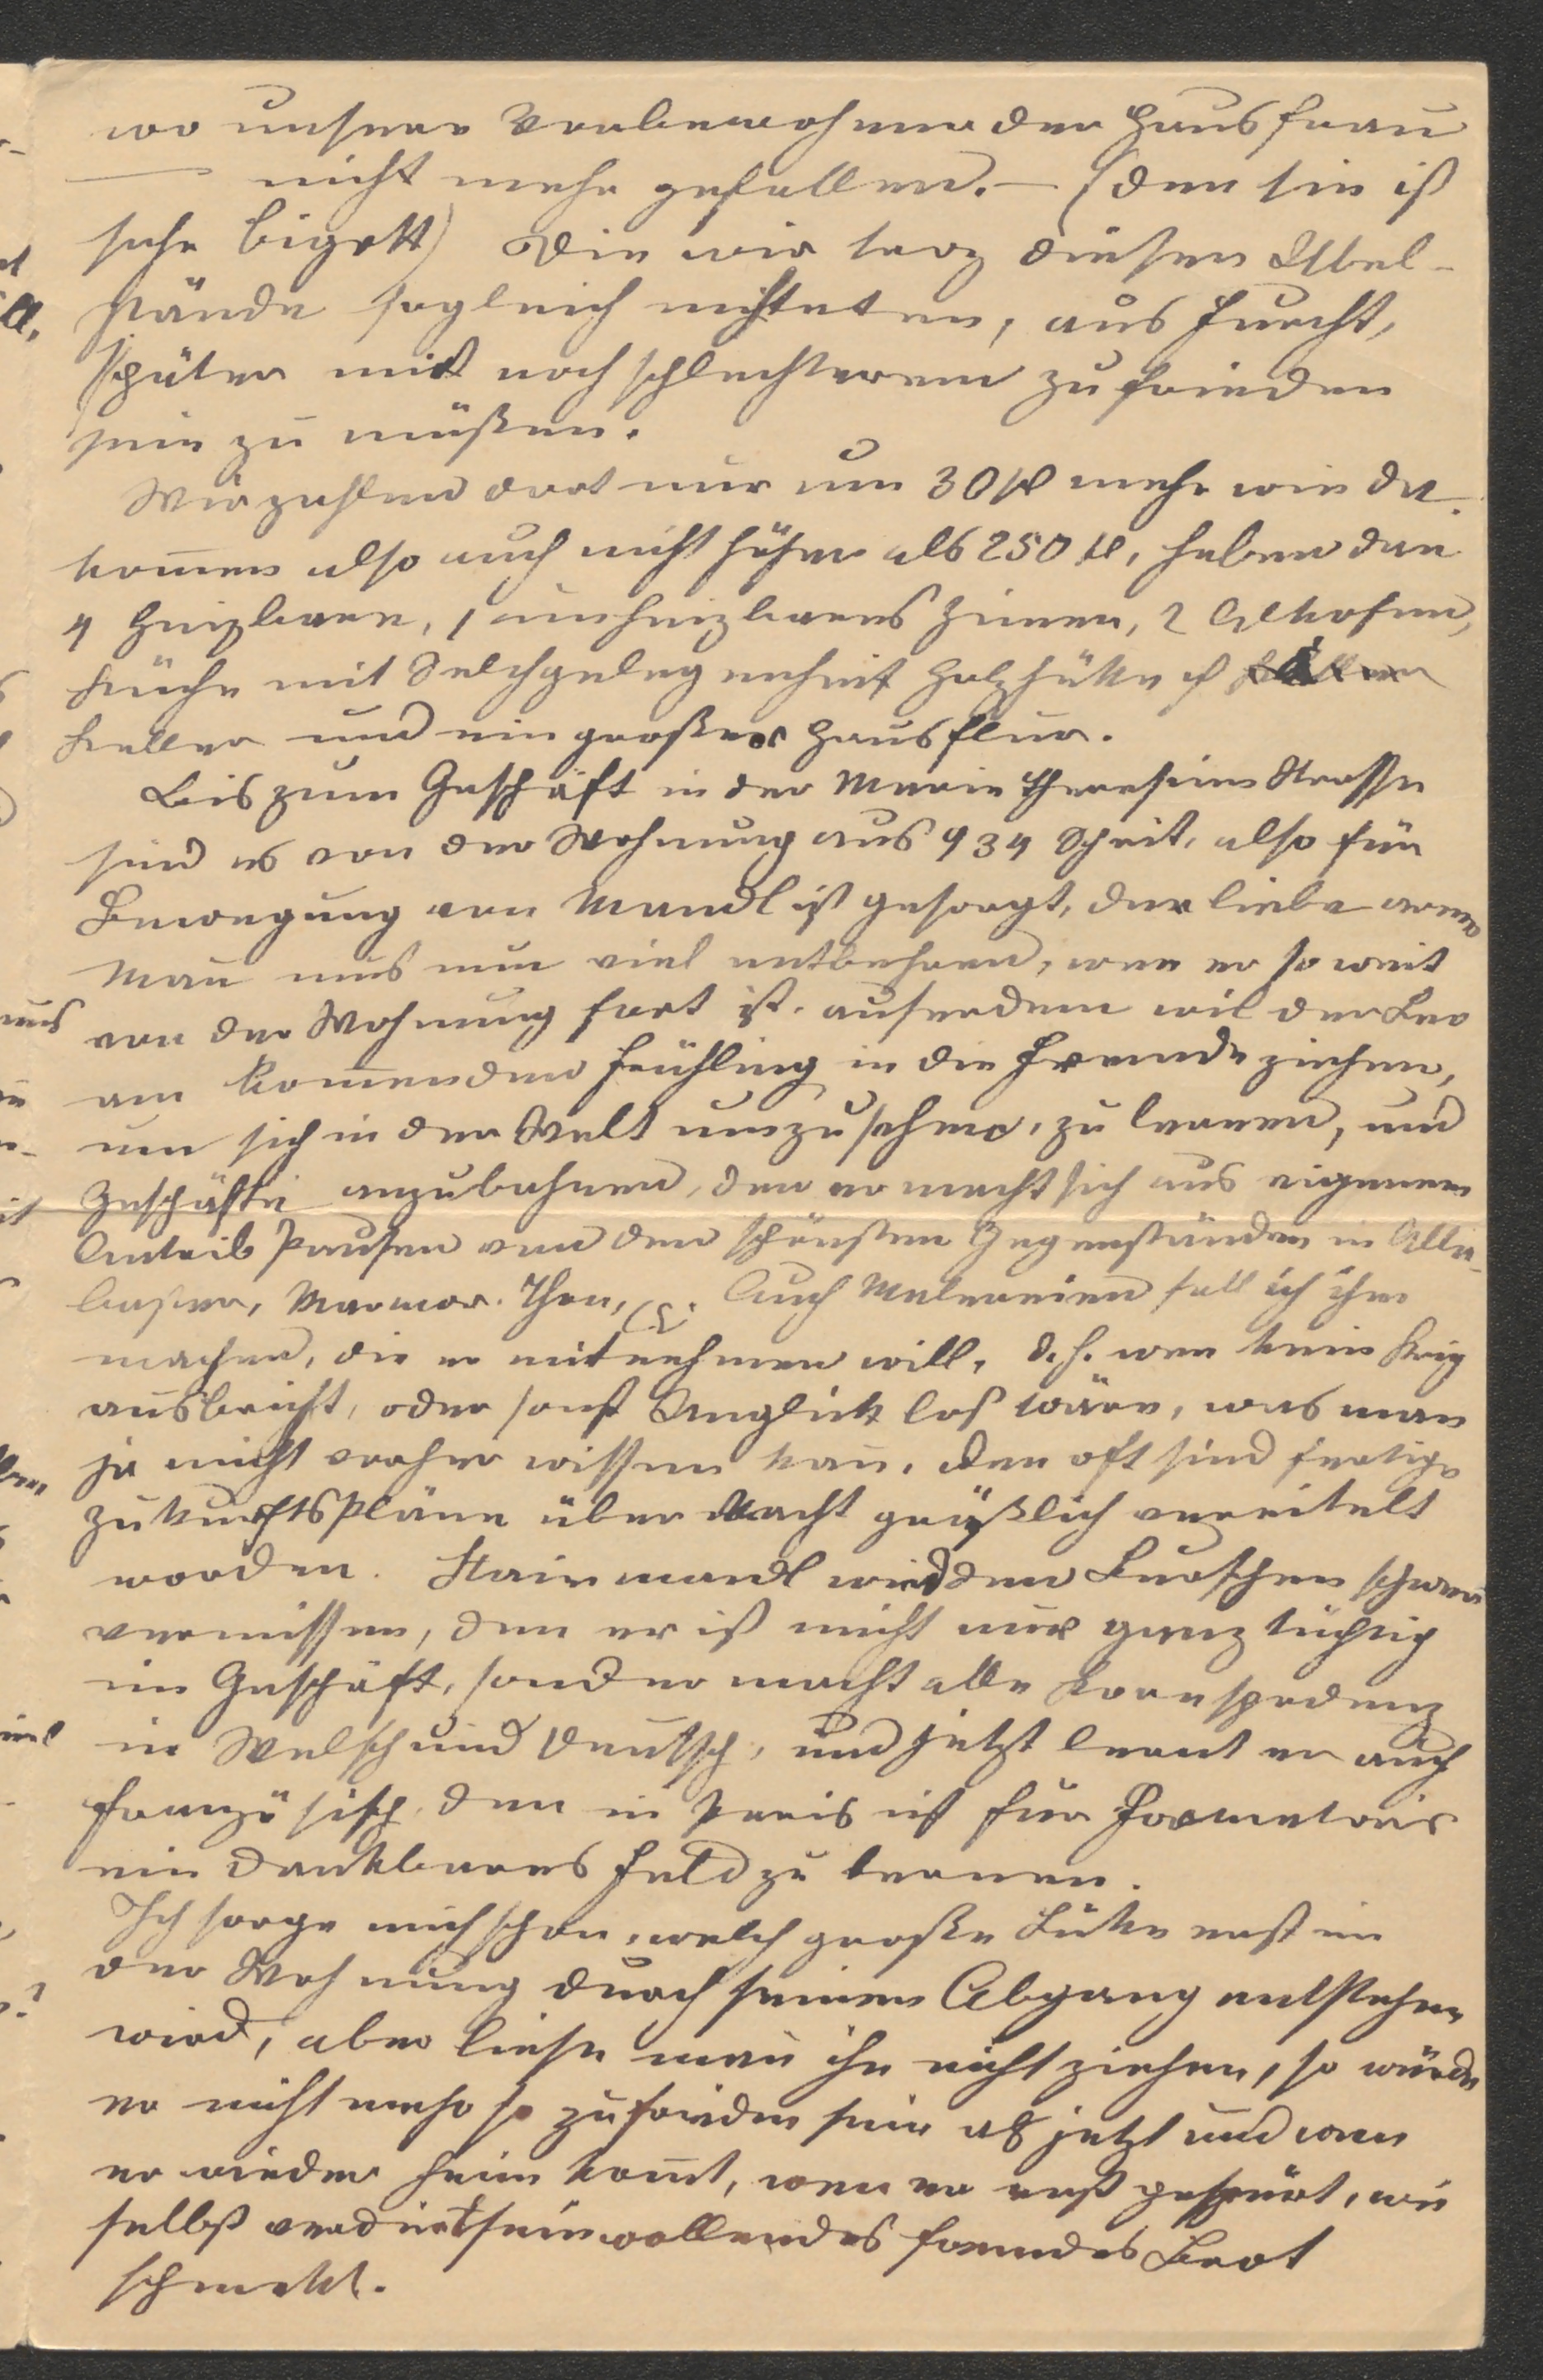 wo unsere Vorbewohner der Hausfrau
— nicht mehr gefallen. — (den sie ist
sehr bigott) Die wir troz diesen Übel-
stände sogleich mitteten, aus Furcht,
später mit noch schlechterem zufrieden
sein zu müßen.
Wir zahlen dort nur um 30 fl mehr wie da.
kom̅en also auch nicht höher als 250 fl, haben dan
4 heizbare, 1 unheizbares Zimer, 2 Alkofen,
Küche mit Selchgelegenheit Holzhütte &
Keller und ein großer Hausflur.
Bis zum Geschäft in der Marie Theresien Strasse
sind es von der Wohnung aus 934 Schrit, also für
Bewegung von Mandl ist gesorgt, der liebe arme
Man̅ mus nun viel entbehren, wen er so weit
von der Wohnung fort ist. auserdem wil der Leo
am kom̅enden Frühling in die Fremde ziehen,
um sich in der Welt umzusehen, zu lernen, und
Geschäfte anzubahnen, den er macht sich aus eigenem
Antrib Pausen von den schönsten Gegenständen in Alla-
baster, Marmor. Thon, &. Auch Malereien soll ich ihm
machen, die er mitnehmen will, d. h. wen kein Krig
ausbricht, oder sonst Unglück los wäre, was man
ja nicht vorher wissen kan̅. den oft sind fertige
Zukunftspläne über Nacht gräßlich vereitelt
worden. Stainmandl wird den Burschen schwer
vermissen, den er ist nicht nur ganz tüchtig
im Geschäft, sonder macht alle Korespodenz
in Welsch und Deutsch, und jetzt lernt er auch
französisch, den in Paris ist für Formatoris
ein dankbares Feld zu lernen.
Ich sorge mich schon, welch große Lücke erst in
der Wohnung durch seinen Abgang entstehen
wird, aber liese man̅ ihn nicht ziehen, so würde
er nicht mehr so zufriden sein als jetzt und wen
er wieder heim kom̅t, wen er erst gespürt, wie
selbst verdint sein wollendes fremdes Brot
schmekt.